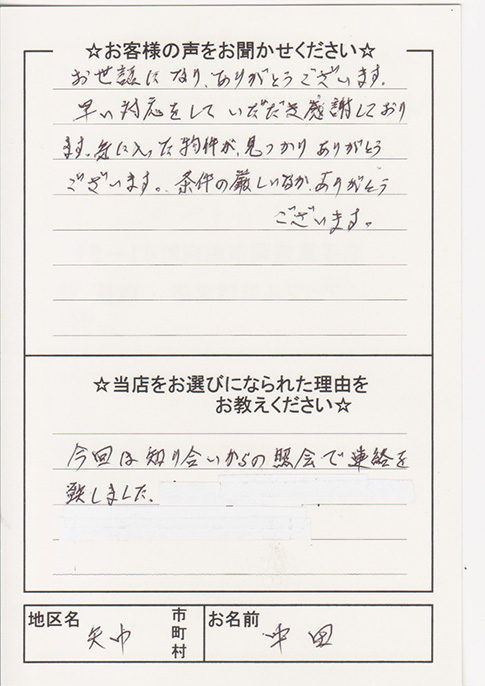 ☆お客様の声をお聞かせください☆
お世話になり、ありがとうございます。
早い対応をしていただき感謝しており
ます。気に入った物件が、見つかりありがとう
ございます。条件の厳しいなか、ありがとう
ございます。
☆当店をお選びになられた理由を
お教えください☆
今回は知り合いからの照会で連絡を
致しました。
地区名 矢中 市町村
お名前 中田